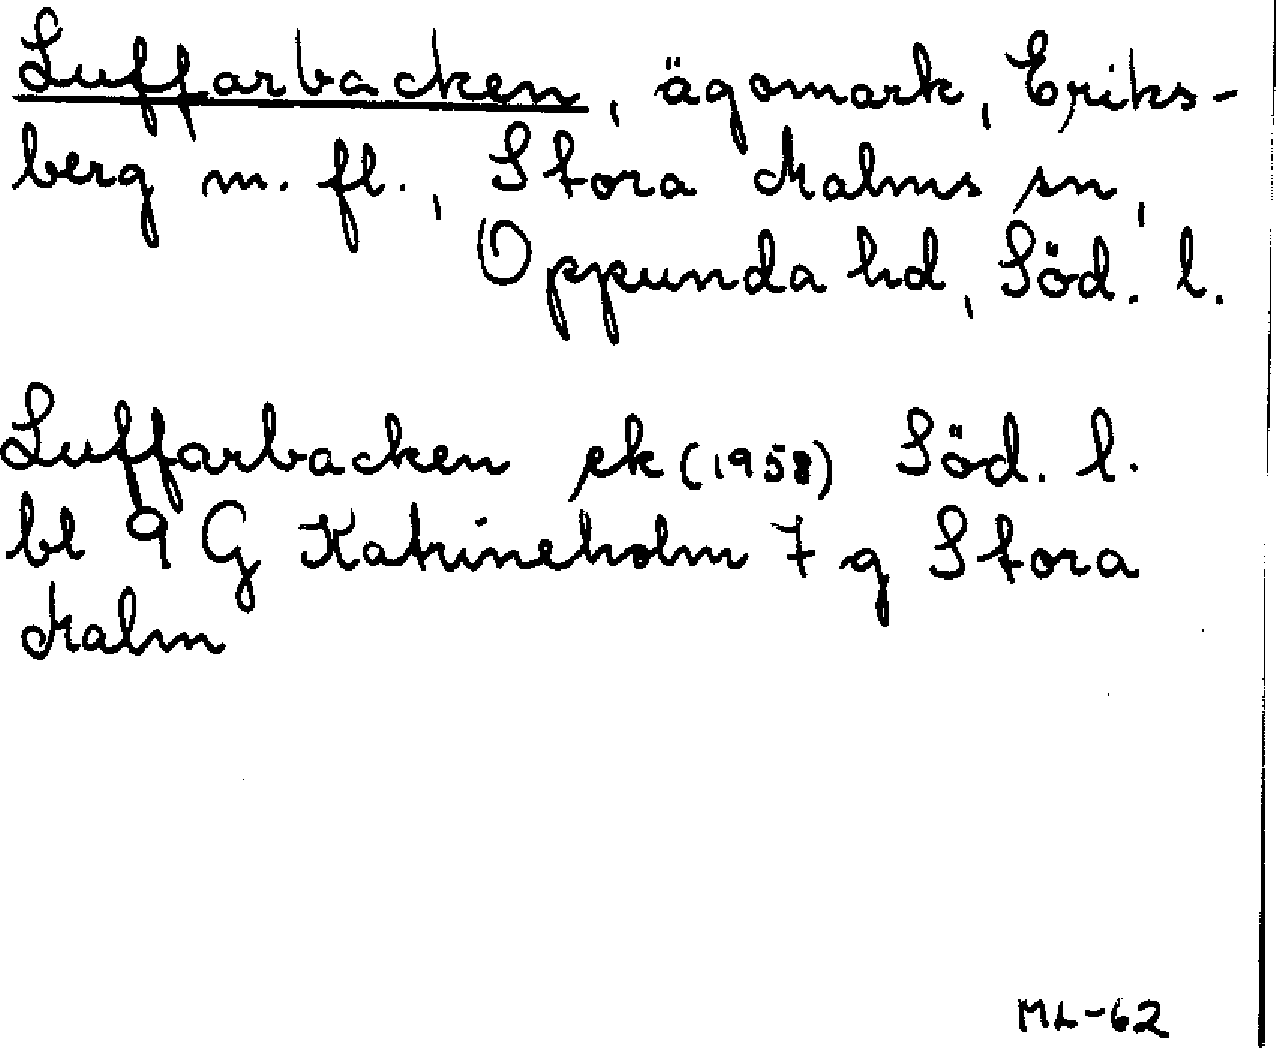 Luffarbacken, ägomark, Eriks-
berg m. fl., Stora Malms sn,
Oppunda hd, Söd. l.
Luffarbacken ek (1958) Söd. l.
bl 9 G Katrineholm 7 g Stora
Malm
ML-62